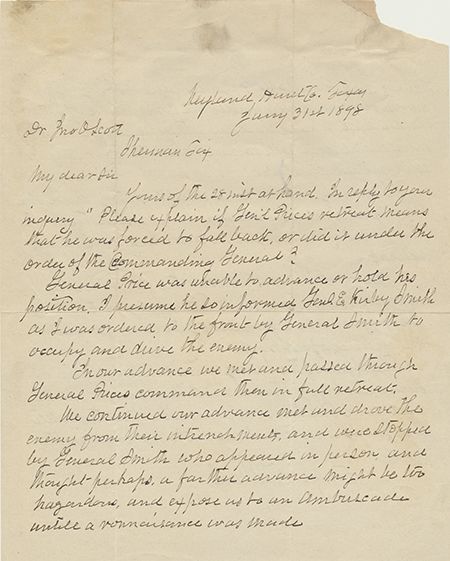 Neyland, Hunt Co. Texas
Jany 31st 1898
Dr Jno O Scott
Sherman Tex
My dear Sir
Yours of the 28 inst at hand. In reply to your
inquery "Please explain if Genl Prices retreat means
that he was forced to fall back, or did it under the
order of the Commanding General?
General Price was unable to advance or hold his
position. I presume he so informed Genl E Kirby Smith
as I was ordered to the front by General Smith to
occupy and drive the enemy.
In our advance we met and passed through
General Prices command then in full retreat.
We continued our advance met and drove the
enemy from their intrenchments, and were stopped
by General Smith who appeared in person and
thought perhaps, a farther advance might be too
hagardous, and expose us to an ambuscade
untile a ronnaisance was made